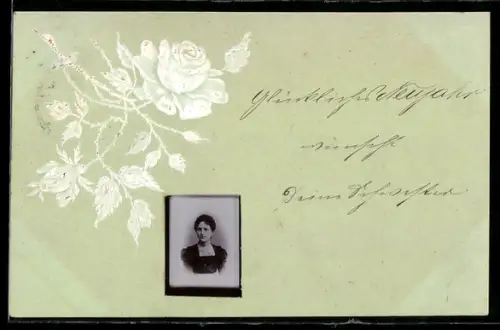 Glückliches Neujahr
wünscht
Deine Schwester